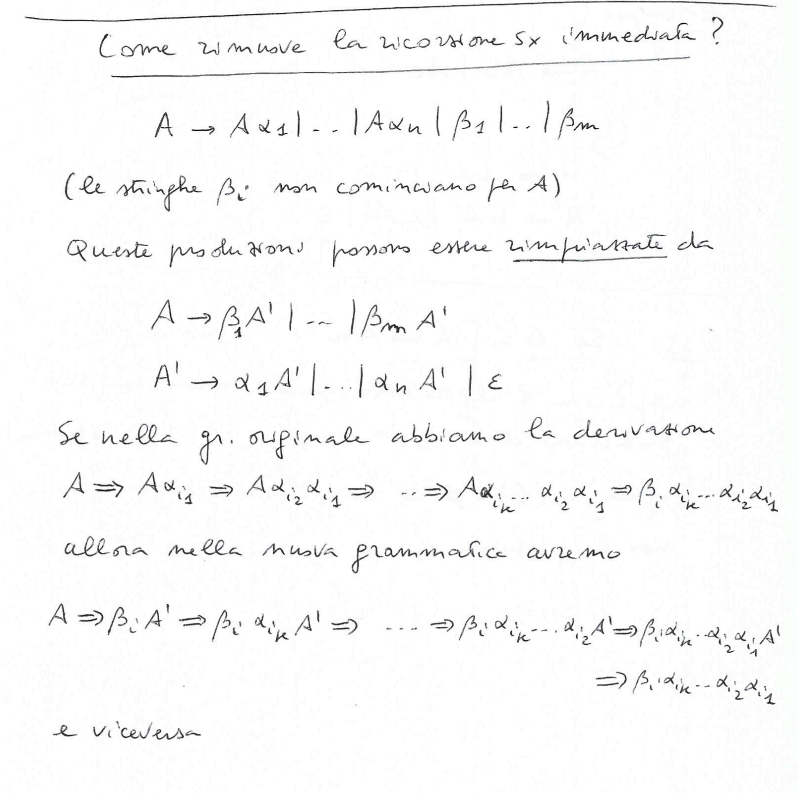 Come rimuove la ricorsione sx immediata?
A → Aα1 | .. | Aαn | β1 | .. | βm
(le stringhe βi non cominciano per A)
Queste produzioni possono essere rimpiazzate da
A → β1A' | ... | βm A'
A' → α1A' | ... | αn A' | ε
Se nella gr. originale abbiamo la derivazione
A ⇒ Aαi1 ⇒ Aαi2 αi1 ⇒ ... ⇒ Aαik... αi2 αi1 ⇒ βi αik... αi2 αi1
allora nella nuova grammatica avremo
A ⇒ βi A' ⇒ βi αik A' ⇒ ... ⇒ βi αik ... αi2 A' ⇒ βi αik .. αi2 αi1 A'
⇒ βi αik ... αi2 αi1
e viceversa